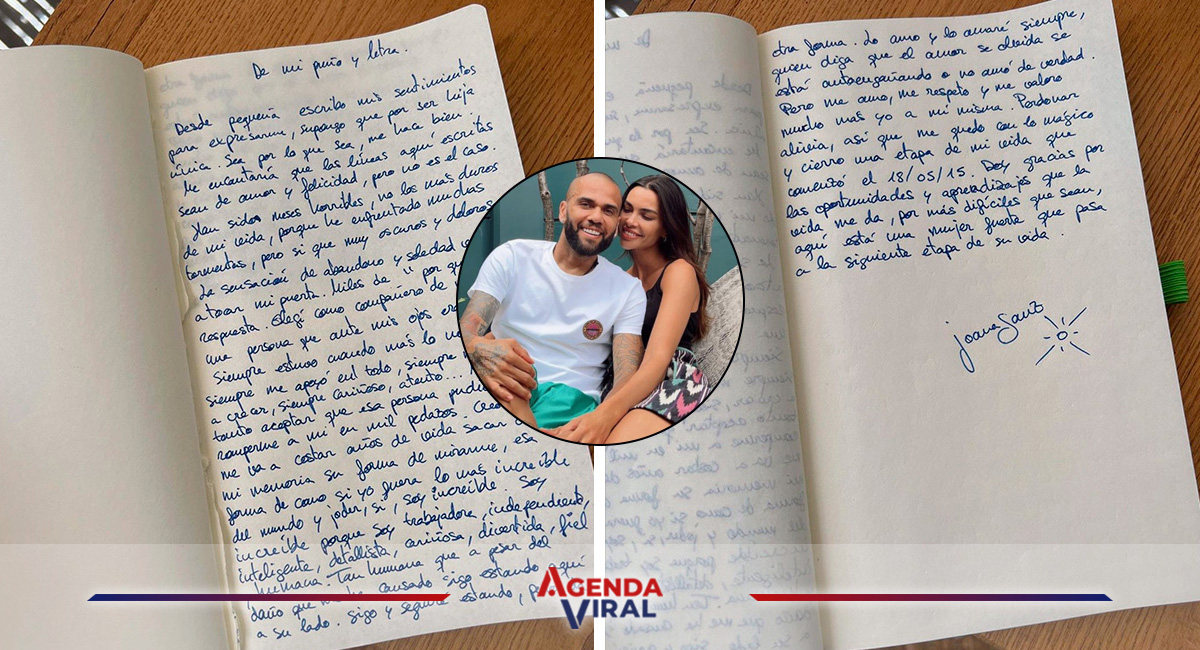 De mi puño y letra.
Desde pequeña escribo mis sentimientos
para expresarme, supongo que por ser hija
única. Sea por lo que sea, me hace bien.
Me encantaría que las líneas aquí escritas
sean de amor y felicidad, pero no es el caso.
Han sido meses horribles, no los más duros
de mi vida, porque he enfrentado muchas
tormentas, pero si que muy oscuros y dolorosos
La sensación de abandono y soledad
a tocar mi puerta. Miles de "por
respuesta. Elegí como compañero de
una persona que ante mis ojos
Siempre estuvo cuando más lo
siempre me apoyó en todo, siempre
a crecer, siempre cariñoso, atento...
tanto aceptar que esa persona
romperme a mi en mil pedazos.
me va a costar años de vida sacar
mi memoria su forma de mirarme, esa
forma de como si yo fuera lo mas increíble
del mundo y joder, si, soy increíble. Soy
increíble porque soy trabajadora, independiente,
inteligente, detallista, cariñosa, divertida, fiel
humana. Tan humana que a pesar del
daño que causado sigo estando aquí
a su lado. Sigo y seguiré estando,
otra forma. Lo amo y lo amaré siempre,
quien diga que el amor se olvida se
está autoengañando o no amó de verdad.
Pero me amo, me respeto y me valoro
mucho mas yo a mi misma. Perdonar
alivia, así que me quedo con lo mágico
y cierro una etapa de mi vida que
comenzó el 18/05/15. Doy gracias por
las oportunidades y aprendizajes que la
vida me da, por más difíciles que sean,
aquí está una mujer fuerte que pasa
a la siguiente etapa de su vida.
Joana Sanz
AGENDA
VIRAL